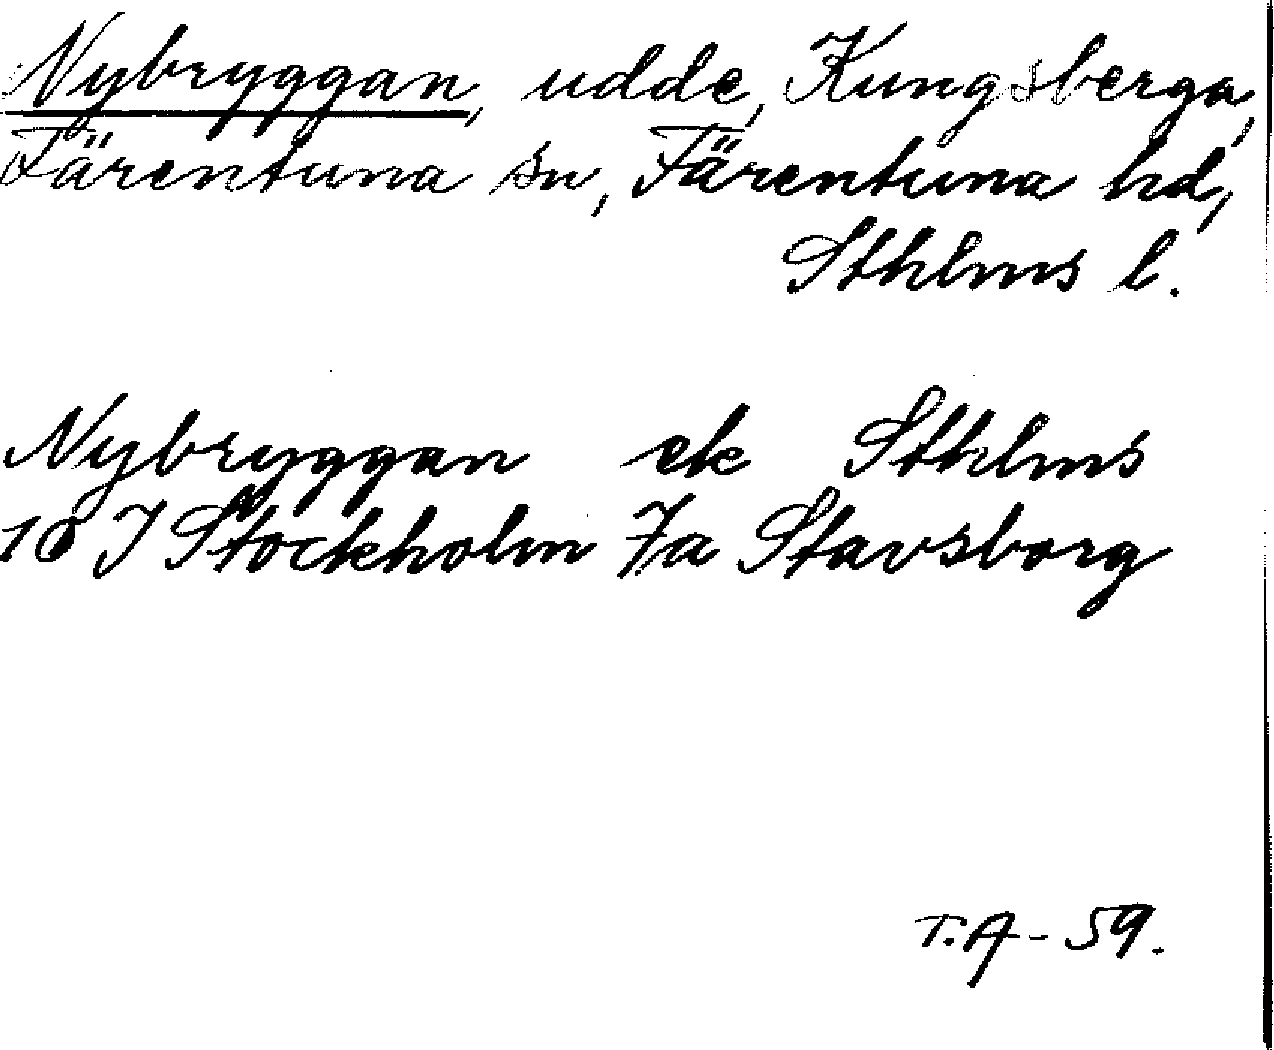 Nybryggan, udde, Kungsberga,
Färentuna sn, Färentuna hd,
Sthlms l.
Nybryggan ek Sthlms
10 I Stockholm 7a Stavsborg
T.A - 59.